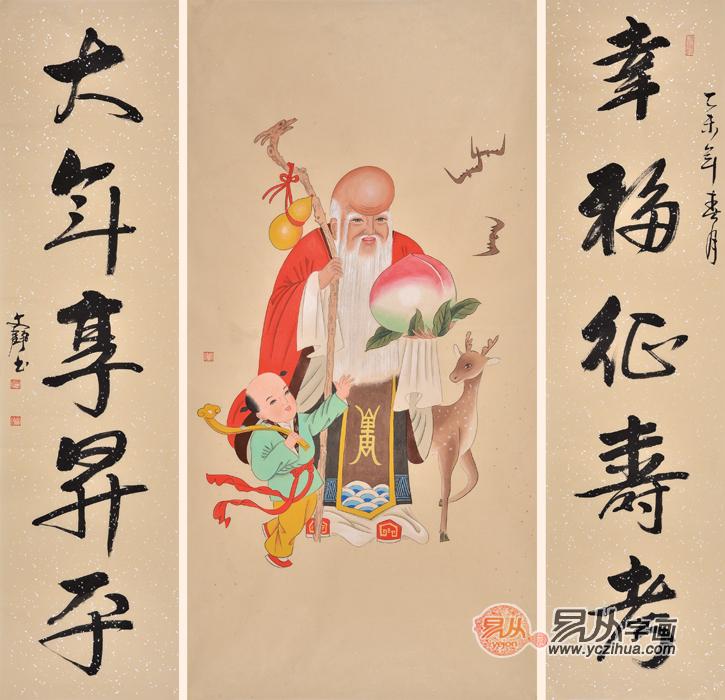 幸福征寿考
乙未年春月
大年享昇平
文静书
易从
易从字画
www.yczihua.com